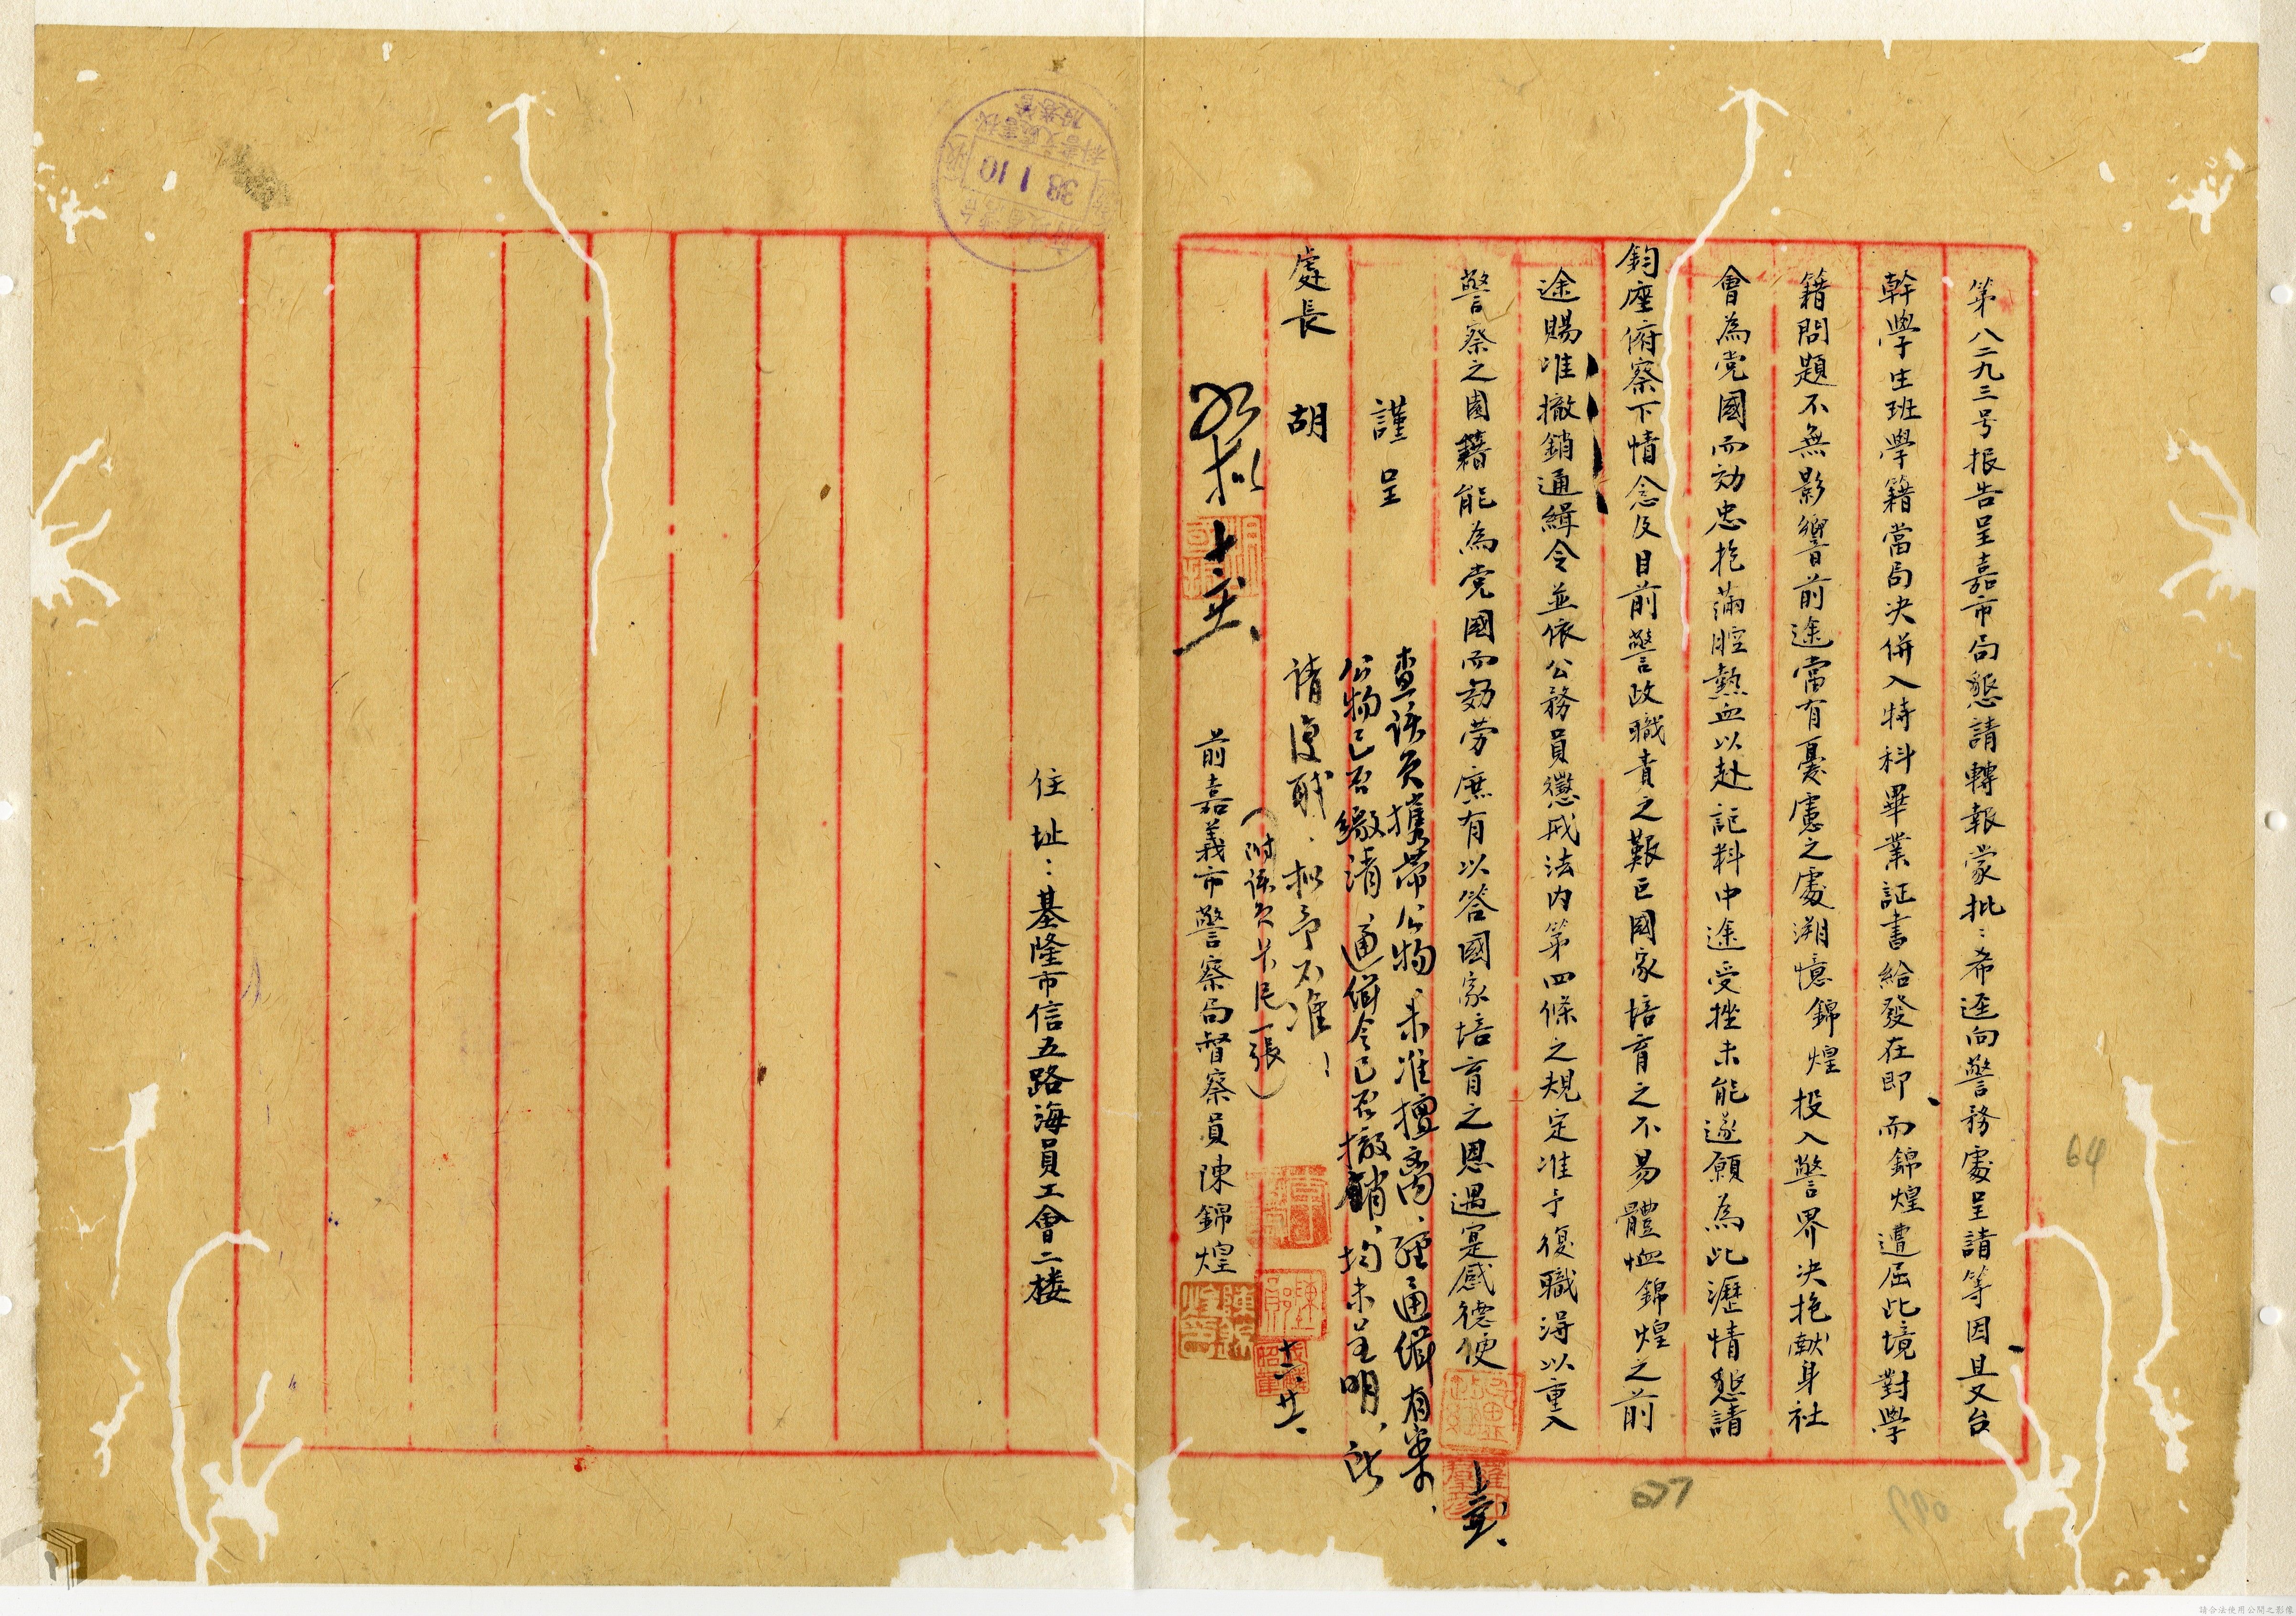 第八二九三号报告呈嘉市局懇請轉報蒙批：希逕向警務處呈請等因且又台
幹學生班學籍當局决併入特科畢業証書給發在即、而錦煌遭屈此境對學
籍問題不無影響前途當有憂慮之處溯憶錦煌投入警界决抱献身社
會為党國而効忠抱滿腔熱血以赴詎料中途受挫未能遂願為此瀝情懇請
鈞座俯察下情念及目前警政職責之艱巨國家培育之不易體恤錦煌之前
途賜准撤銷通緝令並依公務員懲戒法内第四條之規定准予復職得以重入
警察之園籍能為党國而効劳庶有以答國家培育之恩遇寔感德便
謹呈
處長 胡
查該員攜帶公物、未准擅离、經通緝有案、
公物已否繳清 通緝令已否撤銷、均未呈明、所
請復職、拟予不准！
（附該員原呈一張）
如拟
前嘉義市警察局督察員陳錦煌
住址：基隆市信五路海員工會二楼
38 1 10
64
請合法使用公開之影像